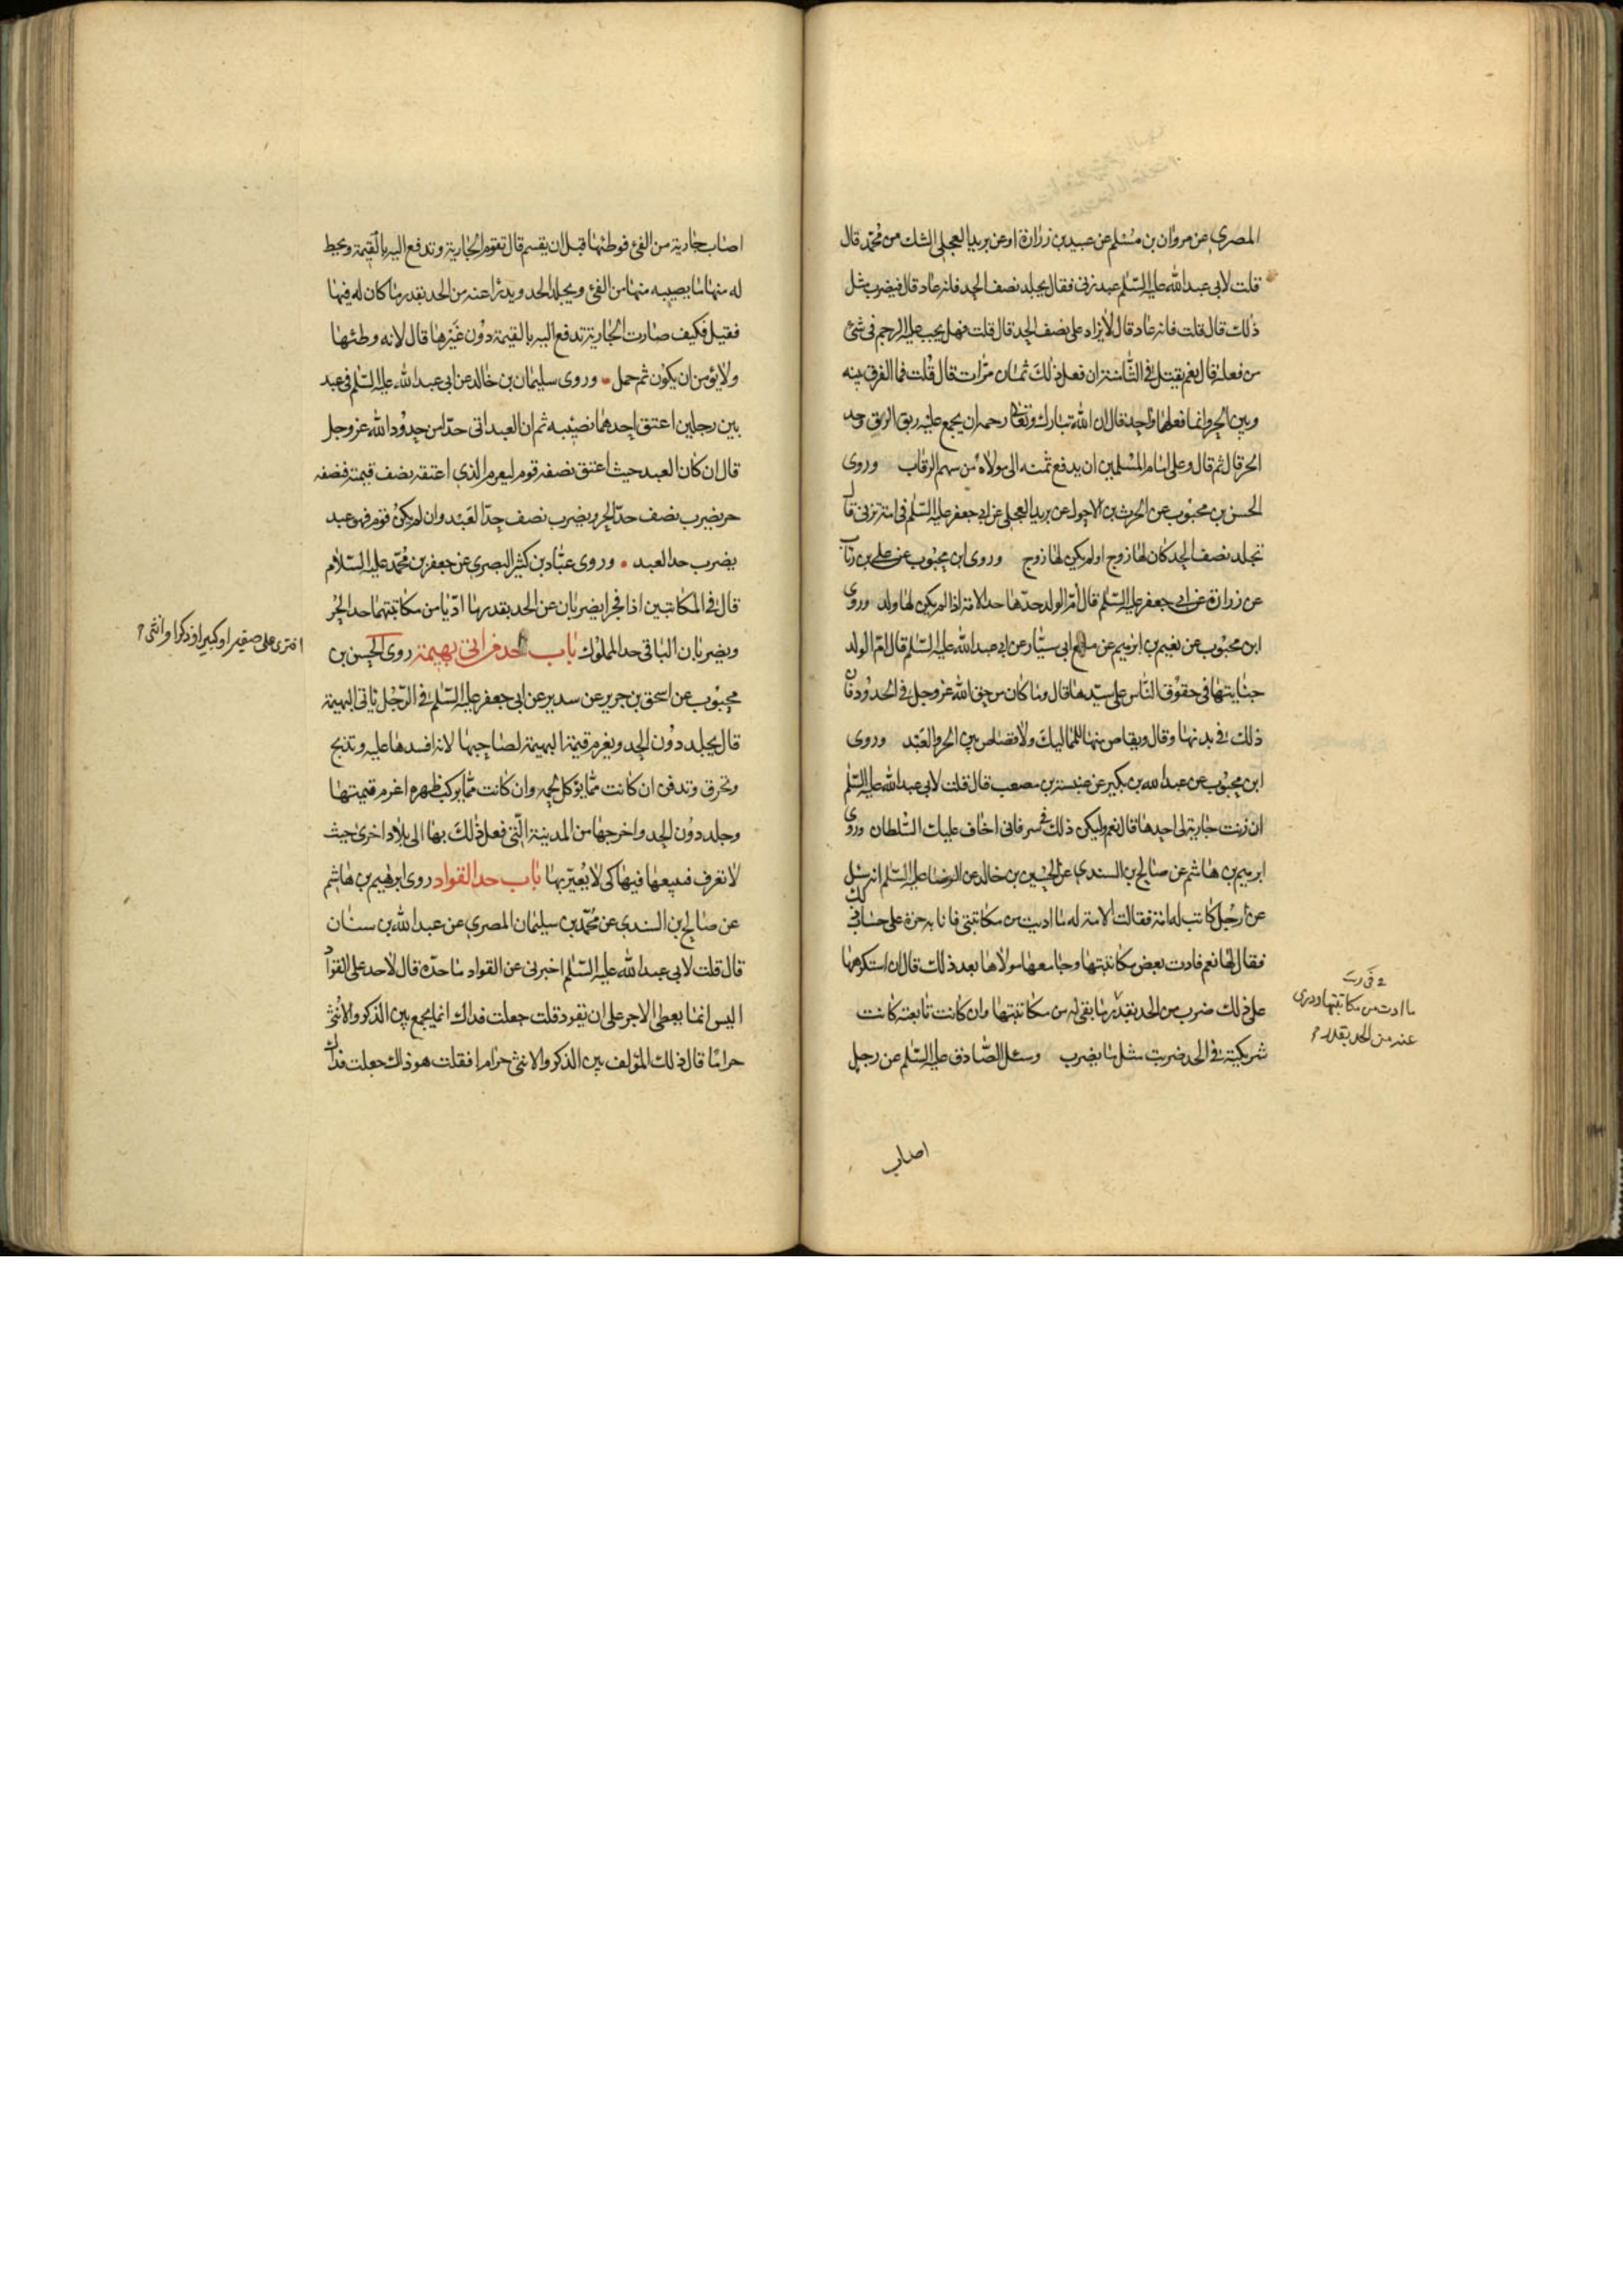 المصري عن مروان بن مسلم عن عبيد بن زرارة او عن بريد العجلي الشك من محمد قال
قلت لابي عبد الله عليه السلم عبد زنى فقال يجلد نصف الحد فانه عاد قال فيضرب مثل
ذلك قال قلت فانه عاد قال لا يزاد على نصف الحد قال قلت فهل يجب عليه الرجم في شئ
من فعله قال نعم يقتل في الثامنة ان فعل ذلك ثمان مرات قال قلت فما الفرق بينه
وبين الحر وانما فعلهما واحد قال ان الله تبارك وتعالى رحمه ان يجمع عليه ربق الرق وحد
الحر قال ثم قال وعلى امام المسلمين ان يدفع ثمنه الى مولاه من سهم الرقاب وروى
الحسن بن محبوب عن الحرث بن الاحول عن بريد العجلي عن ابي جعفر عليه السلم في امة تزني قال
تجلد نصف الحد كان لها زوج او لم يكن لها زوج وروى ابن محبوب عن علي بن رئاب
عن زرارة عن ابي جعفر عليه السلم قال ام الولد حدها حد الامة اذا لم يكن لها ولد وروى
ابن محبوب عن نعيم بن ابرهيم عن مسمع ابي سيار عن ابي عبد الله عليه السلم قال ام الولد
جنايتها في حقوق الناس على سيدها قال وما كان من حق الله عز وجل في الحدود فان
ذلك في بدنها وقال ويقاص منها للمماليك ولا قصاص بين الحر والعبد وروى
ابن محبوب عن عبد الله بن بكير عن عنبسة بن مصعب قال قلت لابي عبد الله عليه السلم
ان زنت جارية لي احدها قال نعم وليكن ذلك في سر فاني اخاف عليك السلطان وروى
ابرهيم بن هاشم عن صالح بن السندي عن الحسين بن خالد عن الرضا عليه السلم انه سئل
عن رجل كاتب له امة فقالت الامة له ما اديت من مكاتبتي فانا به حرة على حساب ذلك
فقال لها نعم فادت بعض مكاتبتها وجامعها مولاها بعد ذلك قال ان استكرهها
على ذلك ضرب من الحد بقدر ما بقى له من مكاتبتها وان كانت تابعته كانت
شريكته في الحد ضربت مثل ما يضرب وسئل الصادق عليه السلم عن رجل
ما ادت من مكاتبتها ودرئ
عنه من الحد بقدر
اصاب
اصاب جارية من الفئ فوطئها قبل ان يقسم قال تقوم الجارية وتدفع اليه بالقيمة ويحط
له منها ما يصيبه منها من الفئ ويجلد الحد ويدرأ عنه من الحد بقدر ما كان له فيها
فقيل فكيف صارت الجارية تدفع اليه بالقيمة دون غيرها قال لانه وطئها
ولا يؤمن ان يكون ثم حمل وروى سليمان بن خالد عن ابي عبد الله عليه السلم في عبد
بين رجلين اعتق احدهما نصيبه ثم ان العبد اتى حدا من حدود الله عز وجل
قال ان كان العبد حيث اعتق نصفه قوم ليغرم الذي اعتقه نصف قيمته فنصفه
حر يضرب نصف حد الحر ويضرب نصف حد العبد وان لم يكن قوم فهو عبد
يضرب حد العبد وروى عباد بن كثير البصري عن جعفر بن محمد عليه السلام
قال في المكاتبين اذا فجرا يضربان عن الحد بقدر ما اديا من مكاتبتهما حد الحر
ويضربان الباقي حد المملوك باب حد من اتى بهيمة روى الحسن بن
محبوب عن اسحق بن جرير عن سدير عن ابي جعفر عليه السلم في الرجل ياتي البهيمة
قال يجلد دون الحد ويغرم قيمة البهيمة لصاحبها لانه افسدها عليه وتذبح
وتحرق وتدفن ان كانت مما يؤكل لحمه وان كانت مما يركب ظهره اغرم قيمتها
وجلد دون الحد واخرجها من المدينة التي فعل ذلك بها الى بلاد اخرى حيث
لا تعرف فيبيعها فيها كي لا يعير بها باب حد القواد روى ابرهيم بن هاشم
عن صالح بن السندي عن محمد بن سليمان المصري عن عبد الله بن سنان
قال قلت لابي عبد الله عليه السلم اخبرني عن القواد ما حده قال لا حد على القواد
اليس انما يعطى الاجر على ان يقود قلت جعلت فداك انما يجمع بين الذكر والانثى
حراما قال ذلك المؤلف بين الذكر والانثى حراما فقلت هو ذاك جعلت فداك
افترى على صغير او كبير او ذكر او انثى